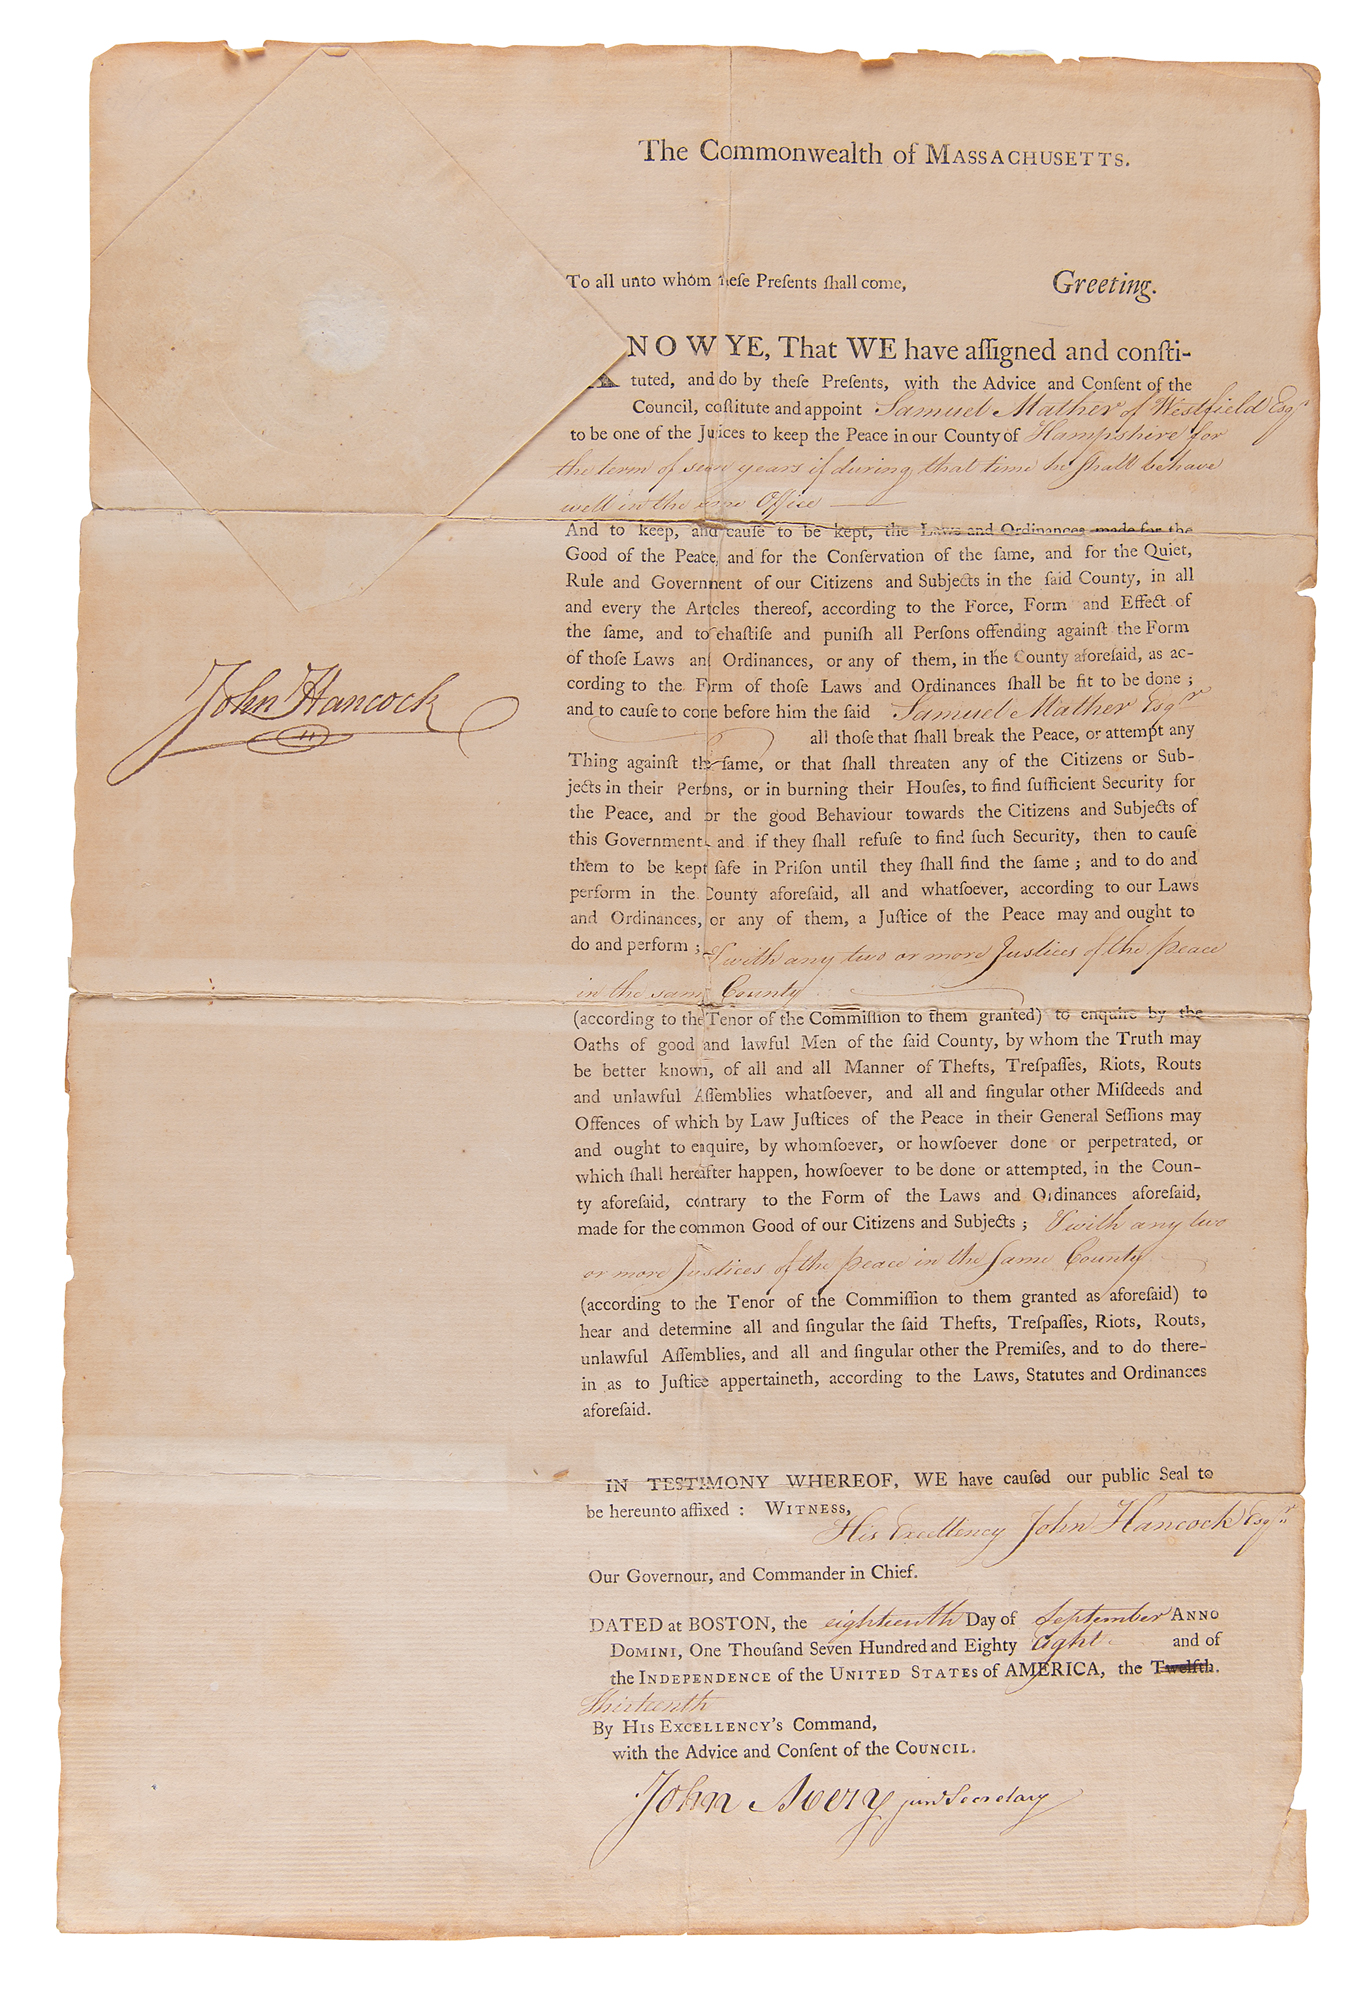 The Commonwealth of MASSACHUSETTS.
To all unto whom theſe Preſents ſhall come, Greeting.
KNOW YE, That WE have aſſigned and conſti-
tuted, and do by theſe Preſents, with the Advice and Conſent of the
Council, coſtitute and appoint Samuel Mather of Westfield Esqr
to be one of the Juices to keep the Peace in our County of Hampshire for
the term of seven years if during that time he shall behave
well in the same Office
And to keep, and cauſe to be kept, the Laws and Ordinances made for the
Good of the Peace, and for the Conſervation of the ſame, and for the Quiet,
Rule and Government of our Citizens and Subjects in the ſaid County, in all
and every the Artcles thereof, according to the Force, Form and Effect of
the ſame, and to chaſtiſe and puniſh all Perſons offending againſt the Form
of thoſe Laws and Ordinances, or any of them, in the County aforeſaid, as ac-
cording to the Form of thoſe Laws and Ordinances ſhall be fit to be done ;
and to cauſe to come before him the ſaid Samuel Mather Esqr
all thoſe that ſhall break the Peace, or attempt any
Thing againſt the ſame, or that ſhall threaten any of the Citizens or Sub-
jects in their Perſons, or in burning their Houſes, to find ſufficient Security for
the Peace, and for the good Behaviour towards the Citizens and Subjects of
this Government and if they ſhall refuſe to find ſuch Security, then to cauſe
them to be kept ſafe in Priſon until they ſhall find the ſame ; and to do and
perform in the County aforeſaid, all and whatſoever, according to our Laws
and Ordinances, or any of them, a Juſtice of the Peace may and ought to
do and perform ; & with any two or more Justices of the peace
in the same County
(according to the Tenor of the Commiſſion to them granted) to enquire by the
Oaths of good and lawful Men of the ſaid County, by whom the Truth may
be better known, of all and all Manner of Thefts, Treſpaſſes, Riots, Routs
and unlawful Aſſemblies whatſoever, and all and ſingular other Miſdeeds and
Offences of which by Law Juſtices of the Peace in their General Seſſions may
and ought to enquire, by whomſoever, or howſoever done or perpetrated, or
which ſhall hereafter happen, howſoever to be done or attempted, in the Coun-
ty aforeſaid, contrary to the Form of the Laws and Ordinances aforeſaid,
made for the common Good of our Citizens and Subjects ; & with any two
or more Justices of the peace in the same County
(according to the Tenor of the Commiſſion to them granted as aforeſaid) to
hear and determine all and ſingular the ſaid Thefts, Treſpaſſes, Riots, Routs,
unlawful Aſſemblies, and all and ſingular other the Premiſes, and to do there-
in as to Juſtice appertaineth, according to the Laws, Statutes and Ordinances
aforeſaid.
John Hancock
IN TESTIMONY WHEREOF, WE have cauſed our public Seal to
be hereunto affixed : WITNESS,
His Excellency John Hancock Esqr
Our Governour, and Commander in Chief.
DATED at BOSTON, the eighteenth Day of September ANNO
DOMINI, One Thouſand Seven Hundred and Eighty eight and of
the INDEPENDENCE of the UNITED STATES of AMERICA, the Twelfth.
Thirteenth
By HIS EXCELLENCY'S Command,
with the Advice and Conſent of the COUNCIL.
John Avery junr Secretary